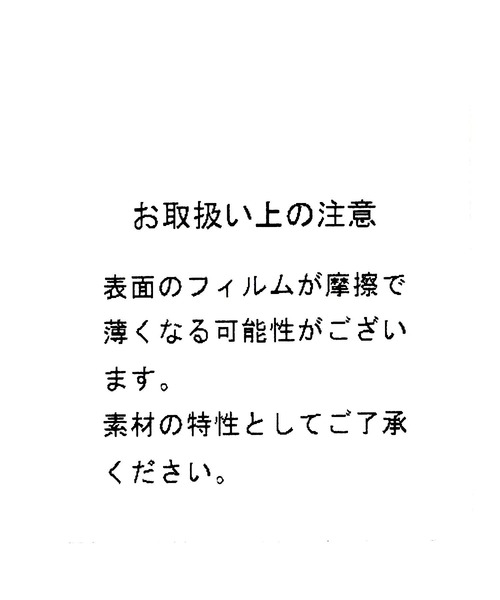 お取扱い上の注意
表面のフィルムが摩擦で
薄くなる可能性がござい
ます。
素材の特性としてご了承
ください。